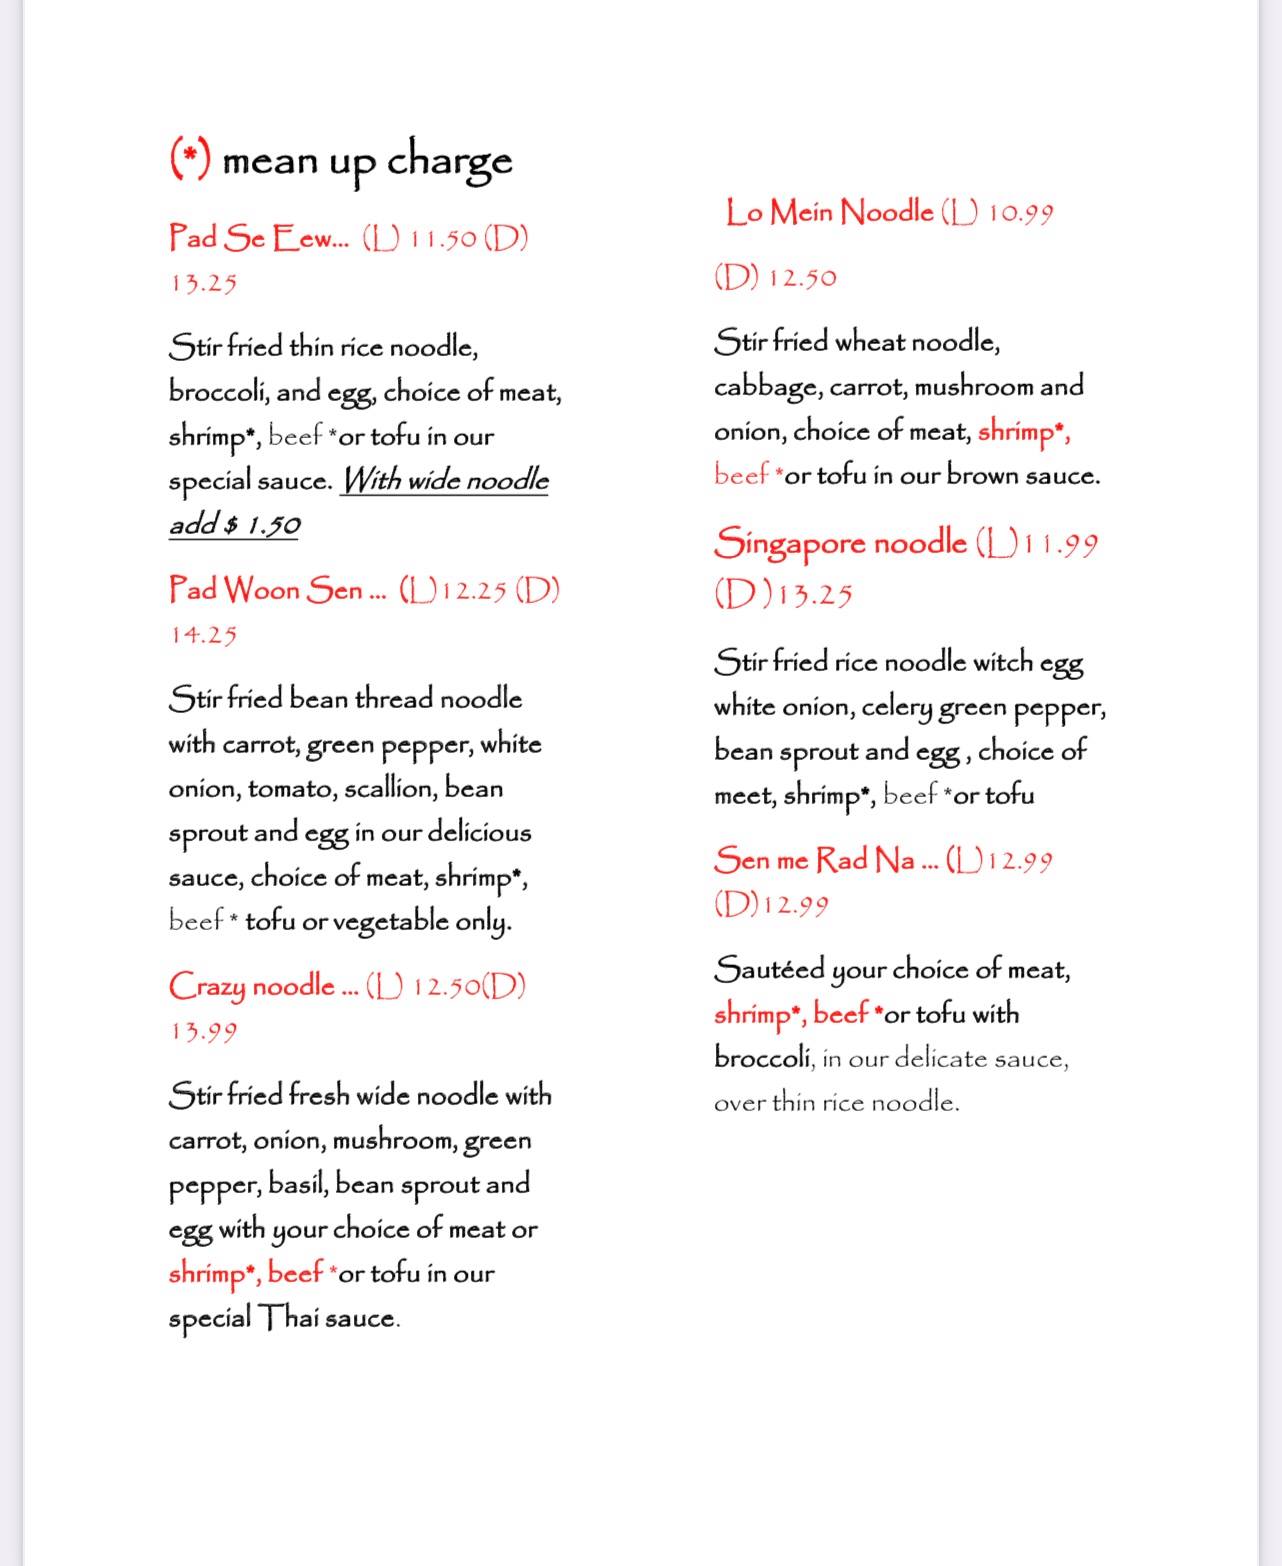 (*) mean up charge
Pad Se Eew... (L) 11.50 (D)
13.25
Stir fried thin rice noodle,
broccoli, and egg, choice of meat,
shrimp*, beef *or tofu in our
special sauce. With wide noodle
add $ 1.50
Pad Woon Sen ... (L)12.25 (D)
14.25
Stir fried bean thread noodle
with carrot, green pepper, white
onion, tomato, scallion, bean
sprout and egg in our delicious
sauce, choice of meat, shrimp*,
beef * tofu or vegetable only.
Crazy noodle ... (L) 12.50(D)
13.99
Stir fried fresh wide noodle with
carrot, onion, mushroom, green
pepper, basil, bean sprout and
egg with your choice of meat or
shrimp*, beef *or tofu in our
special Thai sauce.
Lo Mein Noodle (L) 10.99
(D) 12.50
Stir fried wheat noodle,
cabbage, carrot, mushroom and
onion, choice of meat, shrimp*,
beef *or tofu in our brown sauce.
Singapore noodle (L)11.99
(D )13.25
Stir fried rice noodle witch egg
white onion, celery green pepper,
bean sprout and egg , choice of
meet, shrimp*, beef *or tofu
Sen me Rad Na ... (L)12.99
(D)12.99
Sautéed your choice of meat,
shrimp*, beef *or tofu with
broccoli, in our delicate sauce,
over thin rice noodle.